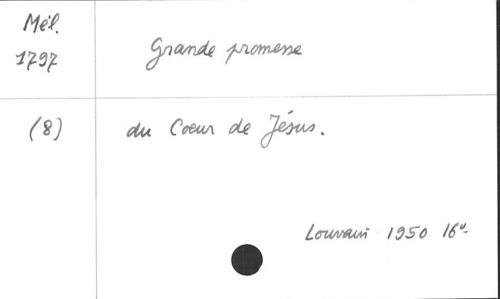 Mél.
1797
Grande promesse
(8)
du Coeur de Jésus.
Louvain 1950 16°.